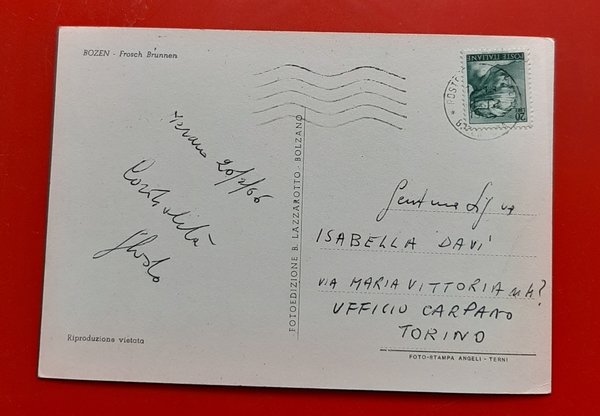 BOZEN - Frosch Brunnen
Merano 20/2/66
Cordialità
FOTOEDIZIONE B. LAZZAROTTO - BOLZANO
POSTE ITALIANE
20
POSTE
Gent.ma Sig.na
ISABELLA DAVI'
VIA MARIA VITTORIA N 4?
UFFICIO CARPANO
TORINO
Riproduzione vietata
FOTO-STAMPA ANGELI - TERNI